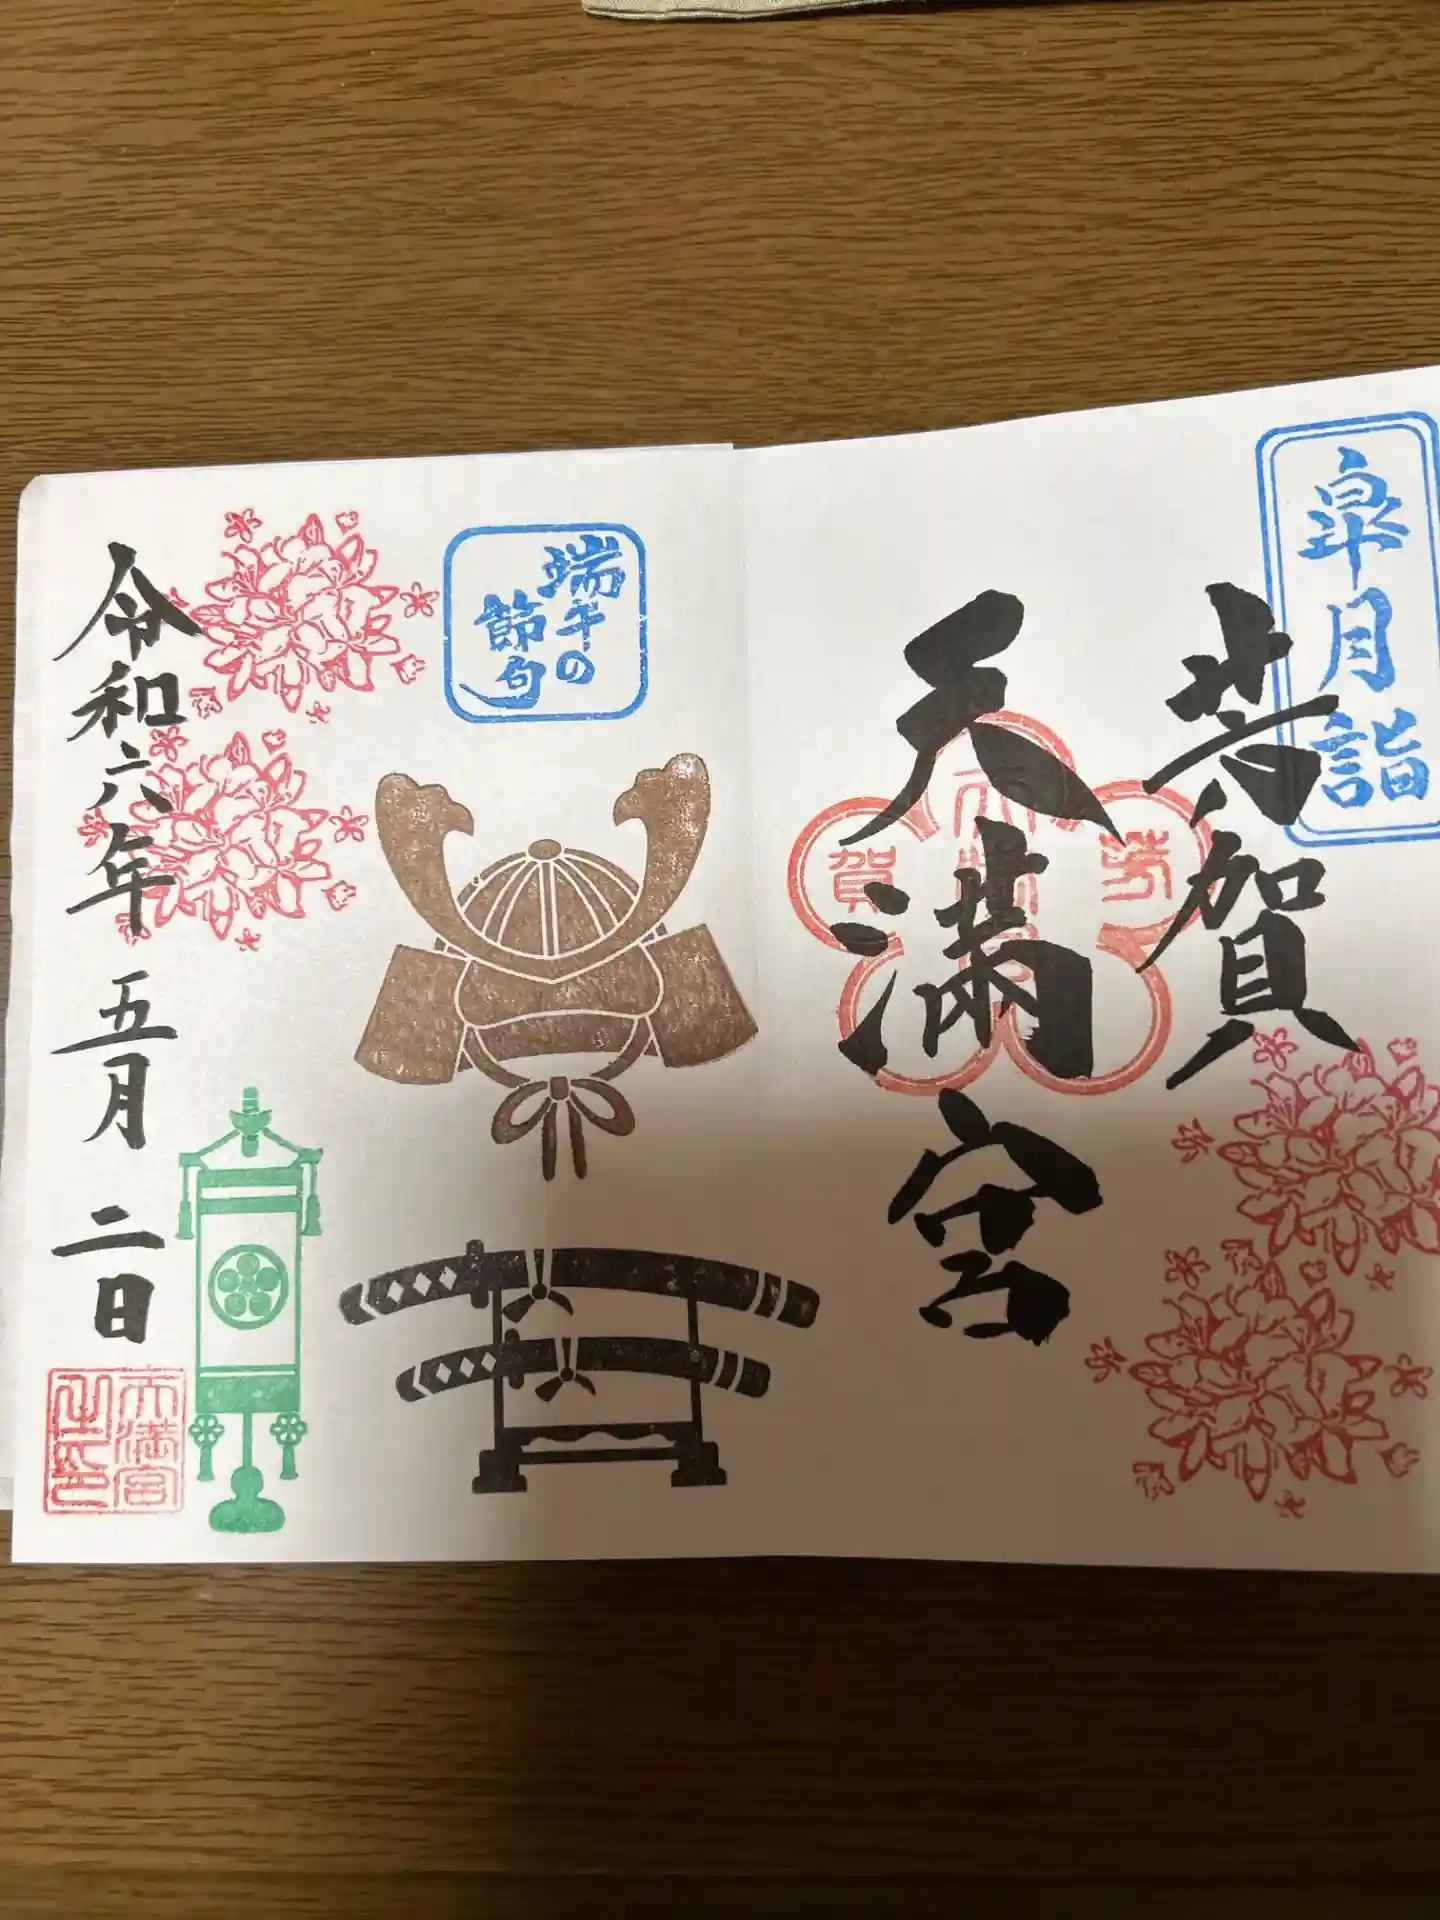 皐月詣
芳賀
天満宮
芳賀
端午の
節句
令和六年五月二日
天満宮
之印